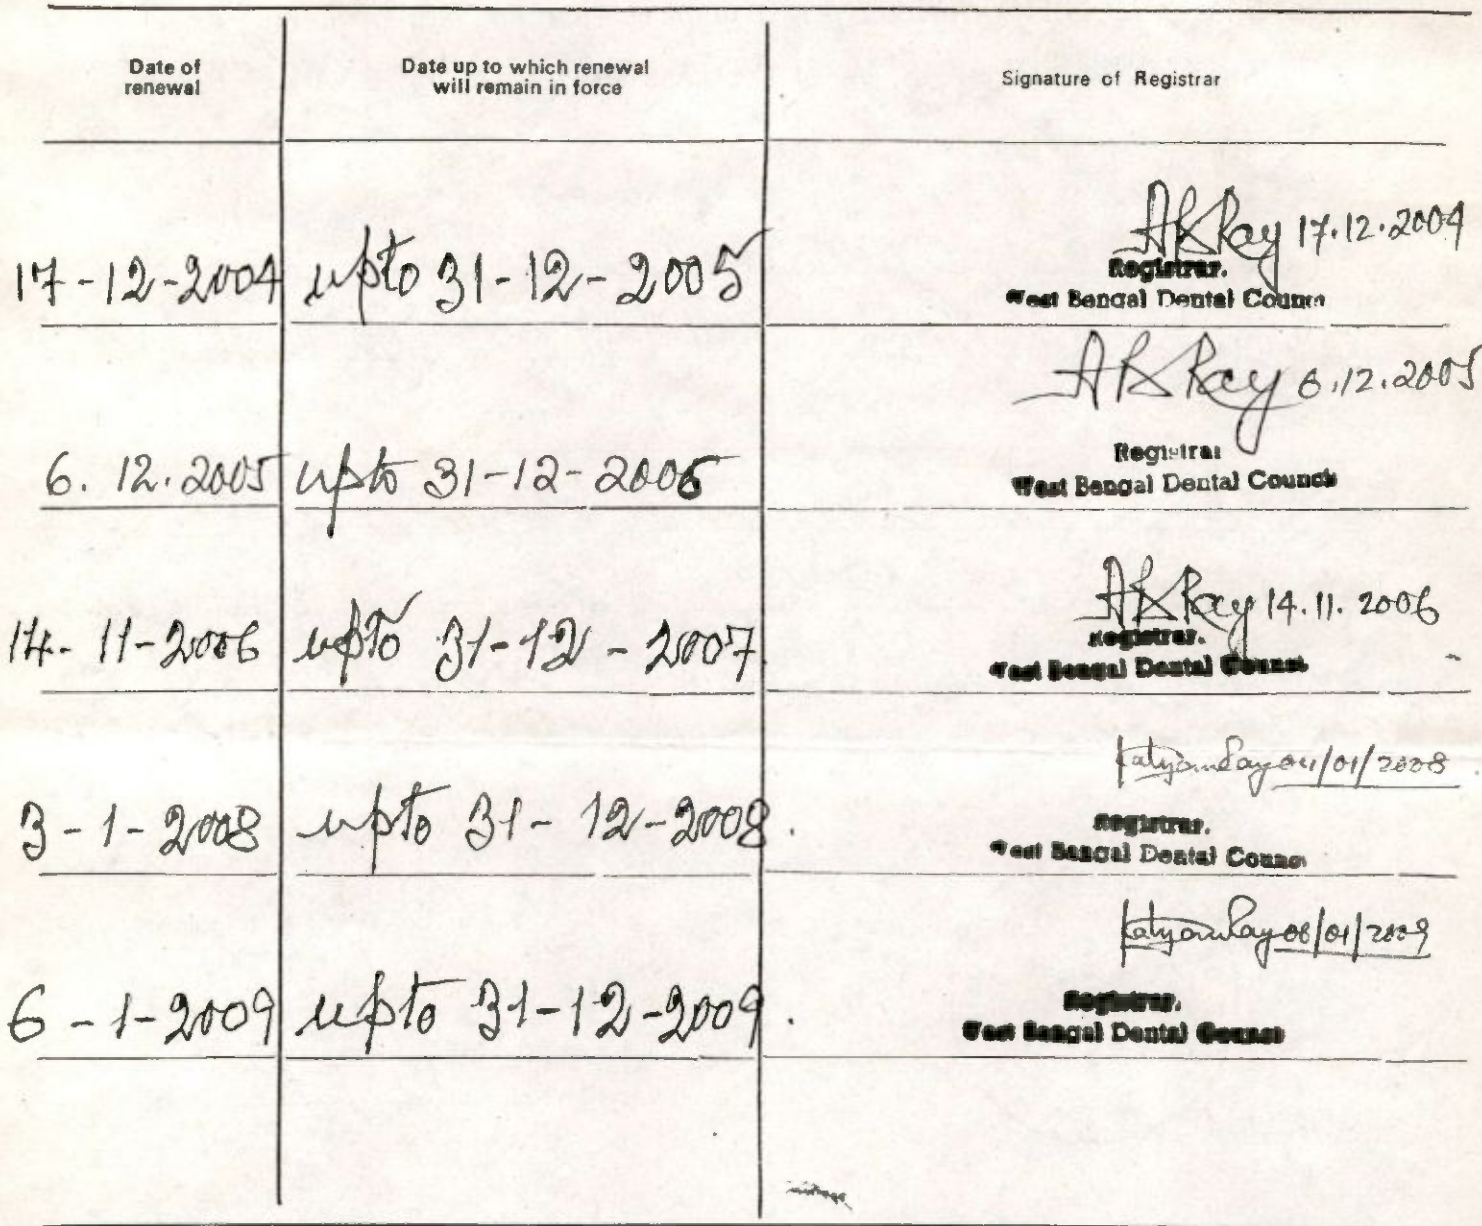 Date of
renewal
Date up to which renewal
will remain in force
Signature of Registrar
17-12-2004 upto 31-12-2005
AKRay 17.12.2004
Registrar.
West Bengal Dental Counci
6.12.2005 upto 31-12-2006
AKRay 6.12.2005
Registrar
West Bengal Dental Council
14-11-2006 upto 31-12-2007
AKRay 14.11.2006
Registrar.
West Bengal Dental Council
3-1-2008 upto 31-12-2008.
KalyanRay 04/01/2008
Registrar.
West Bengal Dental Counci
6-1-2009 upto 31-12-2009.
KalyanRay 06/01/2009
Registrar.
West Bengal Dental Council